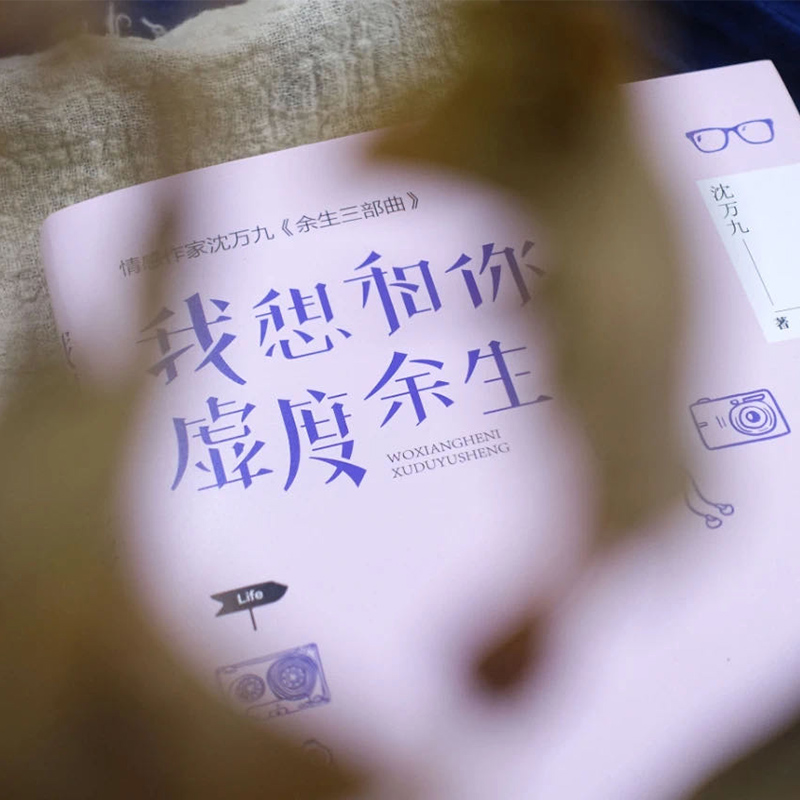 情感作家沈万九《余生三部曲》
我想和你
虚度余生
WOXIANGHENI
XUDUYUSHENG
沈万九
著
Life